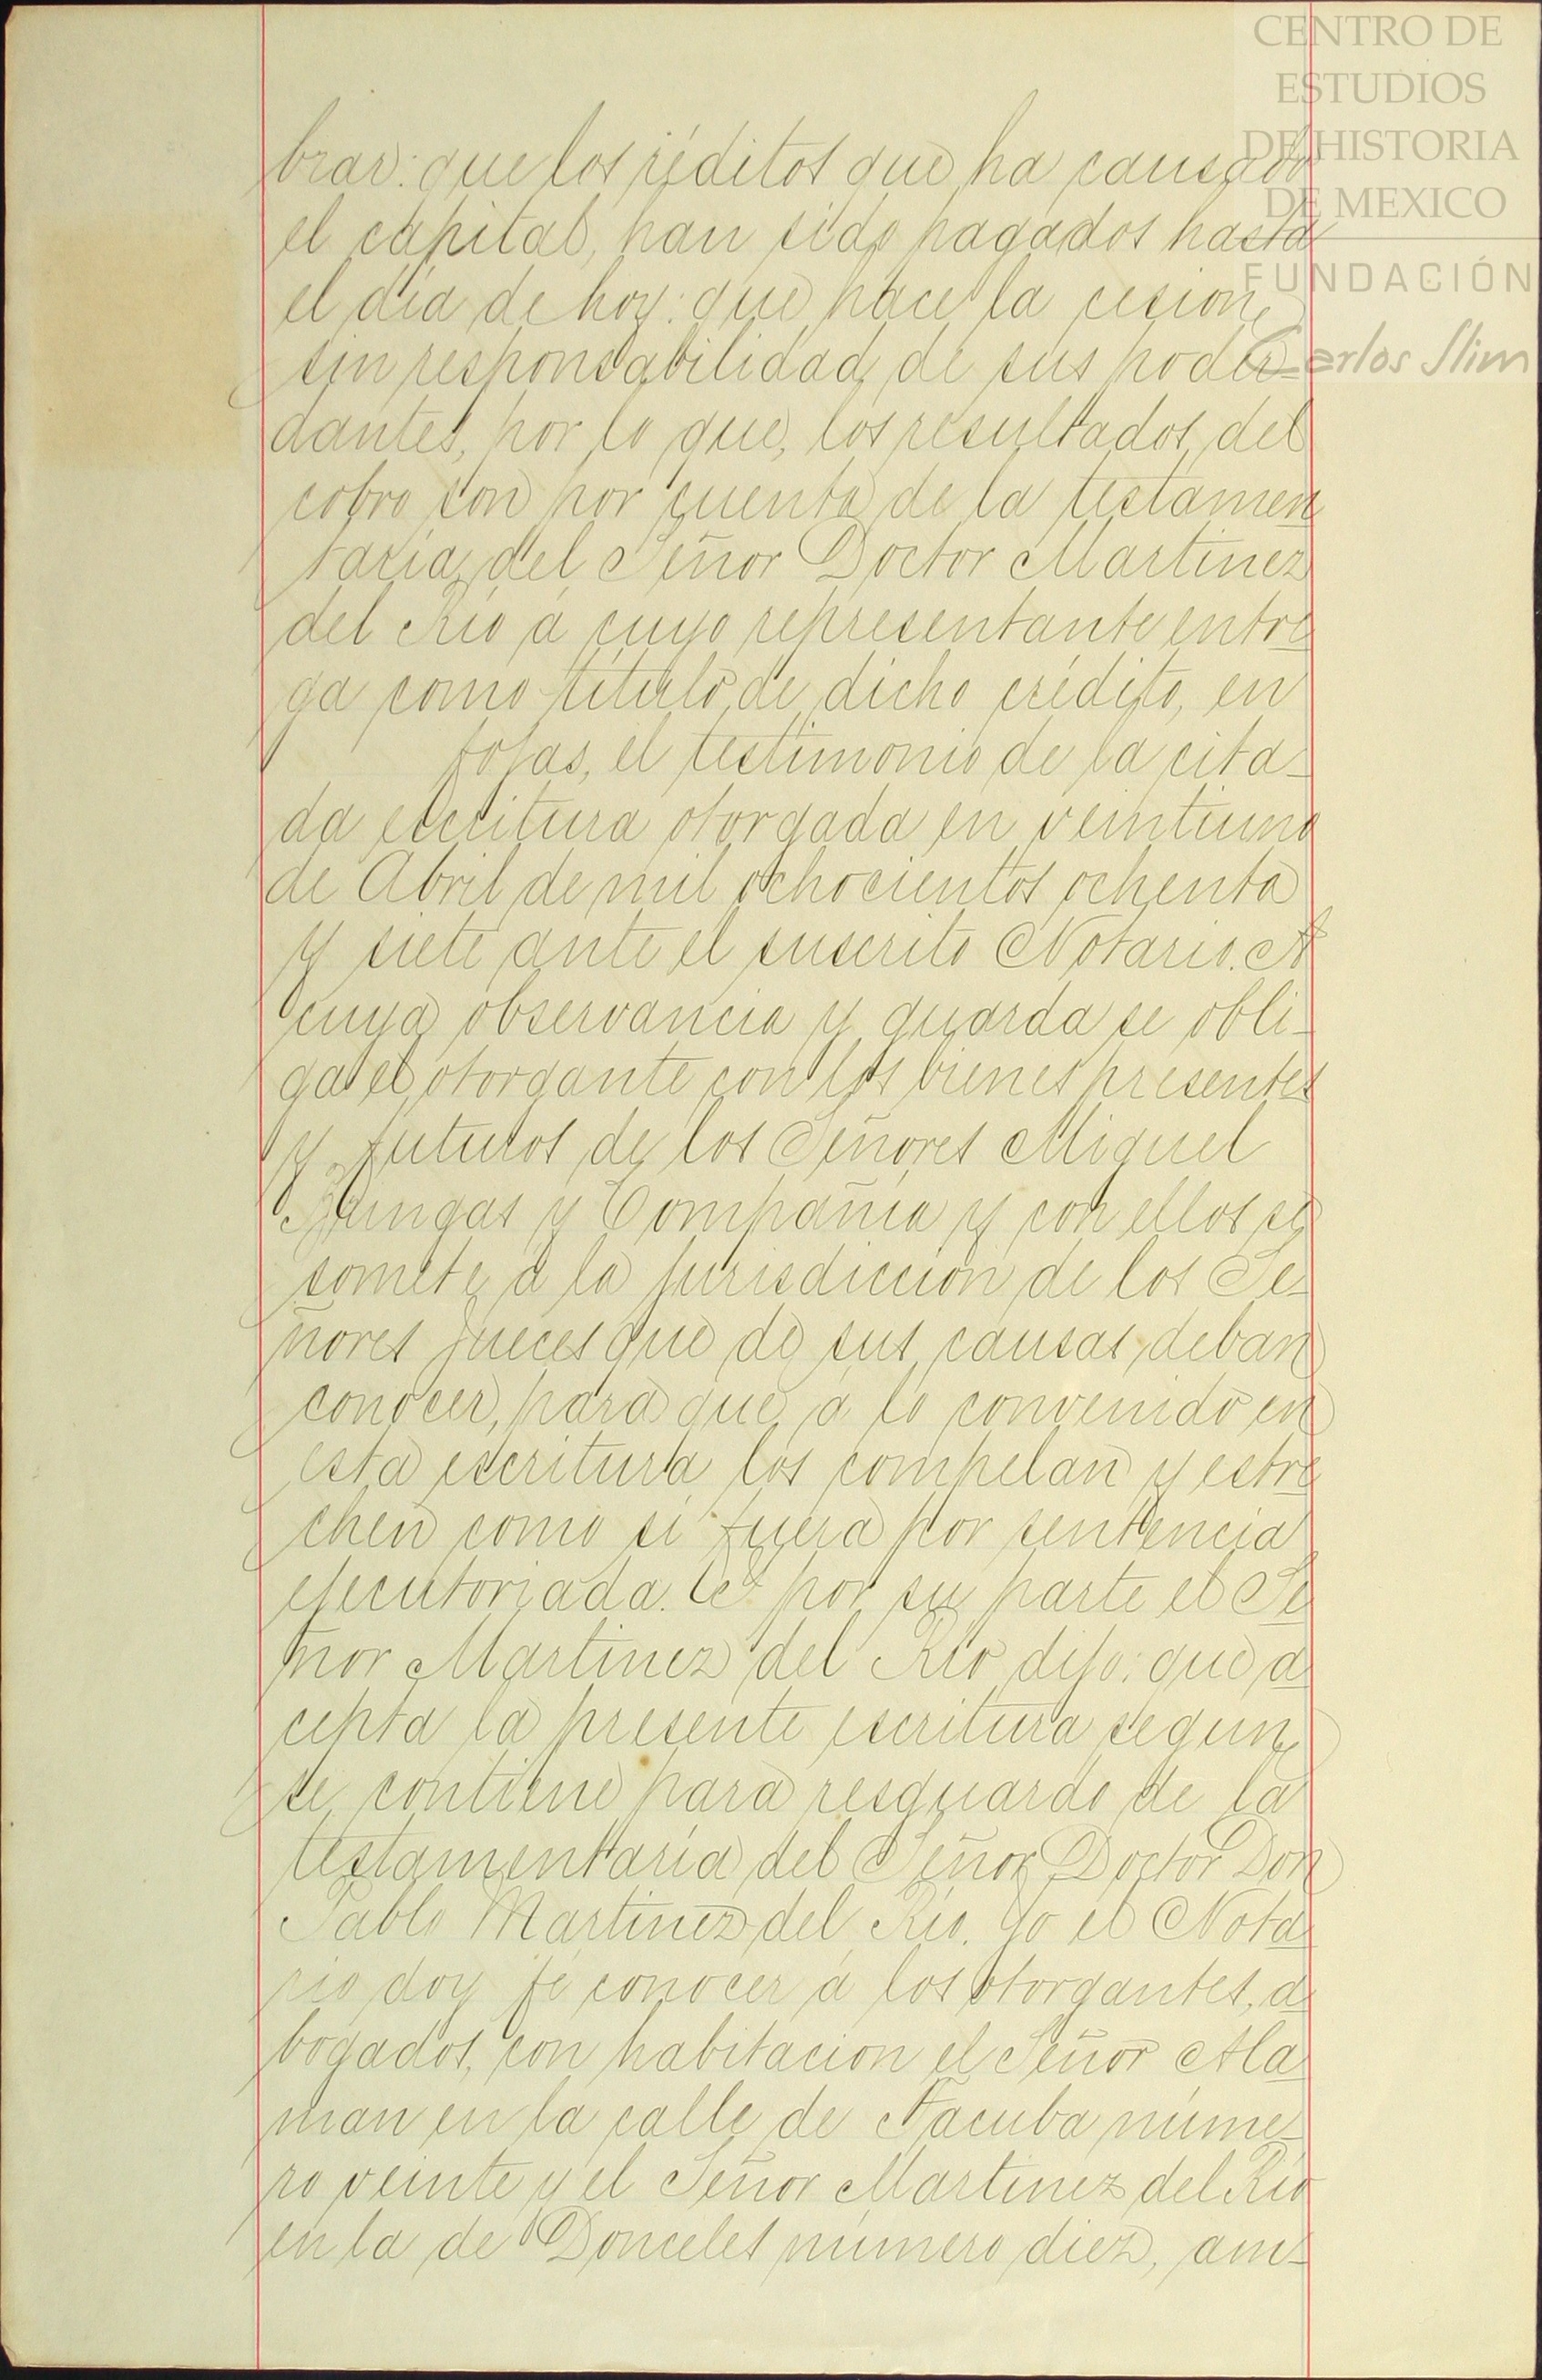 CENTRO DE
ESTUDIOS
DE HISTORIA
DE MEXICO
FUNDACIÓN
Carlos Slim
brar: que los réditos que ha causado
el capital, han sido pagados hasta
el dia de hoy: que hace la cesion,
sin responsabilidad de sus poder-
dantes, por lo que, los resultados del
cobro son por cuenta de la testamen
taria, del Señor Doctor Martinez
del Rio a cuyo representante entre
ga como titulo de dicho crédito, en
fojas, el testimonio de la cita-
da escritura otorgada en veintiuno
de Abril de mil ochocientos ochenta
y siete ante el suscrito Notario. A
cuya observancia y guarda se obli-
ga el otorgante con los bienes presentes
y futuros de los Señores Miguel
y Compañia y con ellos se
somete a la jurisdiccion de los Se-
ñores jueces que de sus causas deban
conocer, para que a lo convenido en
esta escritura los compelan y estre
chen como si fuera por sentencia
ejecutoriada. Y por su parte el Se
ñor Martinez del Rio dijo: que a
cepta la presente escritura segun
se contiene para resguardo de la
testamentaria del Señor Doctor Don
Pablo Martinez del Rio. Yo el Nota
rio doy fé conocer a los otorgantes, a
bogados, con habitacion el Señor Ala
man en la calle de Tacuba núme-
ro veinte y el Señor Martinez del Rio
en la de Donceles número diez, am-